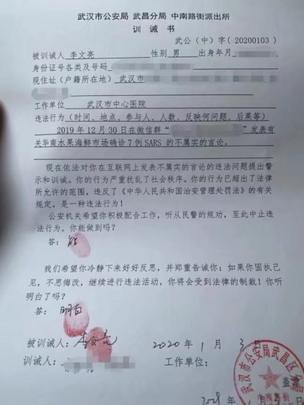 武汉市公安局 武昌分局 中南路街派出所
训 诫 书
武公(中)字(20200103)
被训诫人 李文亮 性别 男 出身年月
身份证号各类及号码
现住址(户籍所在地) 武汉市
工作单位 武汉市中心医院
违法行为(时间、地点、参与人、人数、反映何问题、后果等)
2019年12月30日在微信群“ ”发表有
关华南水果海鲜市场确诊7例SARS的不属实的言论。
现在依法对你在互联网上发表不属实的言论的违法问题提出警
示和训诫。你的行为严重扰乱了社会秩序。你的行为已超出了法律
所允许的范围，违反了《中华人民共和国治安管理处罚法》的有关
规定，是一种违法行为!
公安机关希望你积极配合工作，听从民警的规劝，至此中止违
法行为。你能做到吗?
答: 能
我们希望你冷静下来好好反思，并郑重告诫你:如果你固执己
见，不思悔改，继续进行违法活动，你将会受到法律的制裁!你听
明白了吗?
答: 明白
被训诫人: 李文亮 2020年1月3日
训诫人: 工作单位:
武汉市公安局武昌区